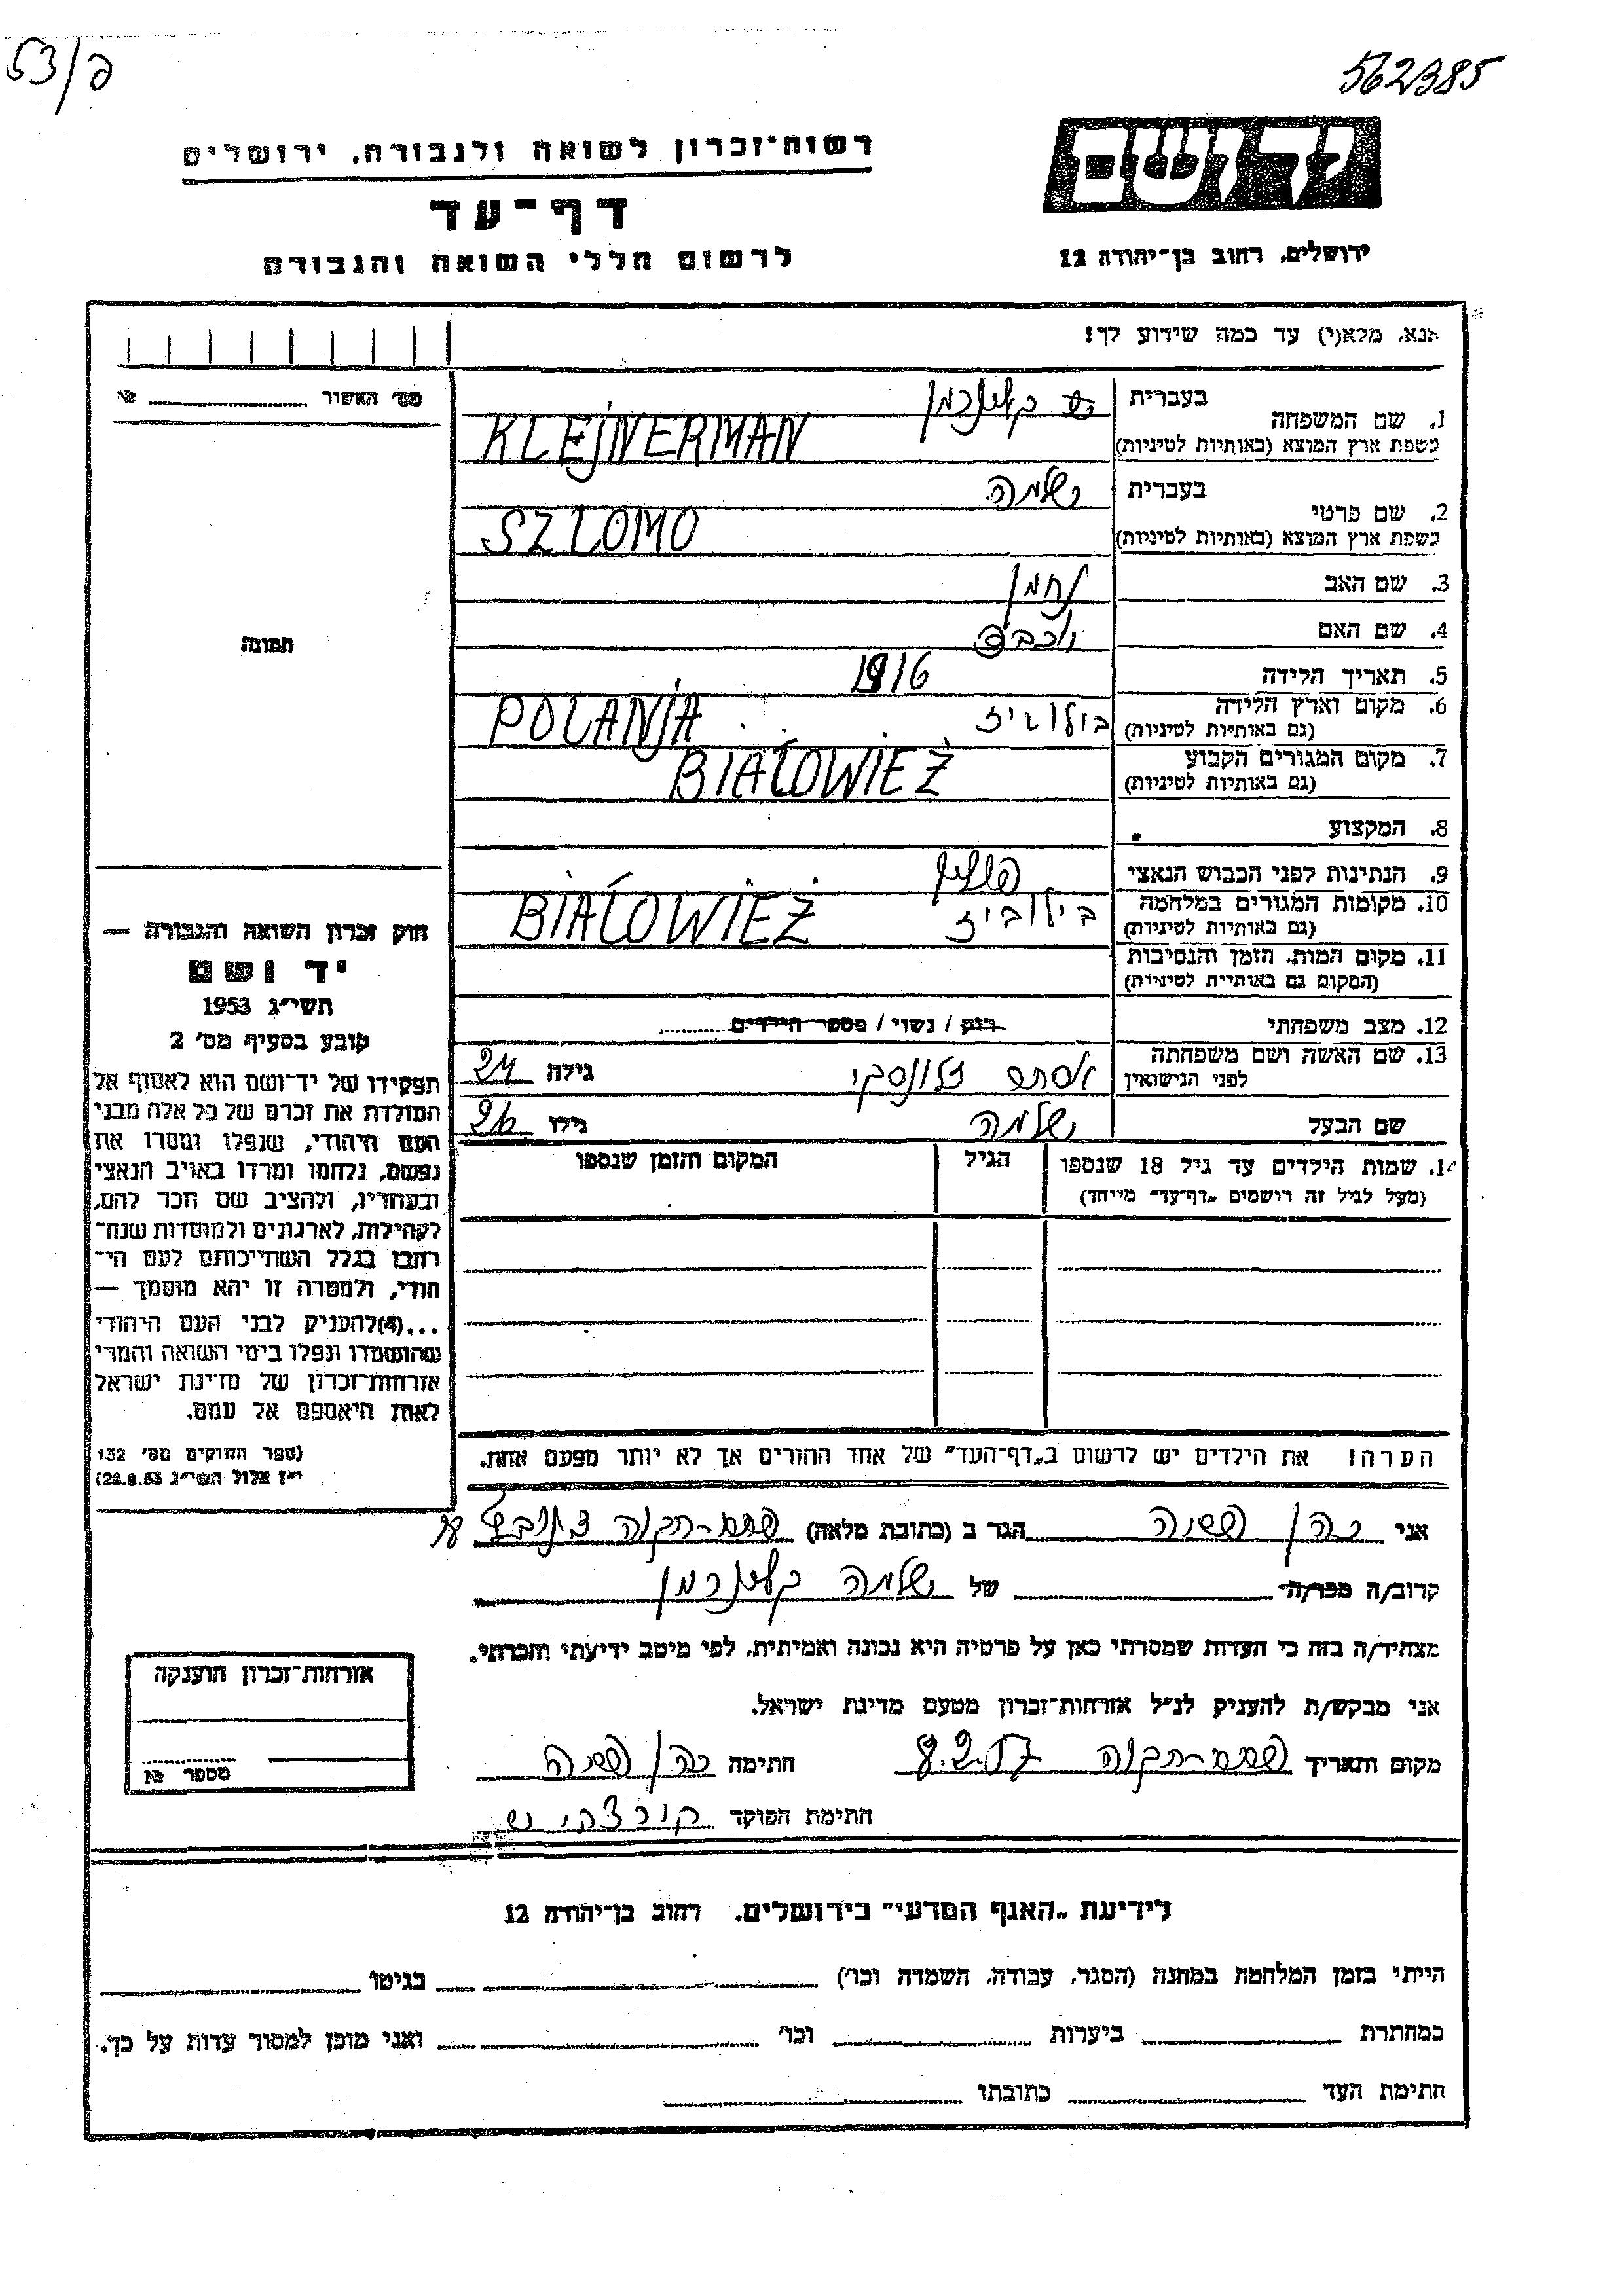 53/פ
562385
יד ושם
רשות־זכרון לשואה ולגבורה, ירושלים
דף־עד
לרשום חללי השואה והגבורה
ירושלים, רחוב בן־יהודה 12
אנא, מלא(י) עד כמה שידוע לך!
מס׳ האשור № 
1. שם המשפחה בעברית קלינרמן
בשפת ארץ המוצא (באותיות לטיניות) KLEJNERMAN
2. שם פרטי בעברית שלמה
בשפת ארץ המוצא (באותיות לטיניות) SZLOMO
3. שם האב נחמן
4. שם האם
5. תאריך הלידה 1916
6. מקום וארץ הלידה
(גם באותיות לטיניות) POLANJA
7. מקום המגורים הקבוע
(גם באותיות לטיניות) BIAŁOWIEŻ
8. המקצוע
9. הנתינות לפני הכבוש הנאצי
10. מקומות המגורים במלחמה
(גם באותיות לטיניות) בילוביז BIAŁOWIEŻ
11. מקום המות, הזמן והנסיבות
(המקום גם באותיות לטיניות)
12. מצב משפחתי רווק / נשוי / מספר הילדים
13. שם האשה ושם משפחתה
לפני הנישואין אסתר גילה 24
שם הבעל שלמה גילו 26
14. שמות הילדים עד גיל 18 שנספו הגיל המקום והזמן שנספו
(מעל לגיל זה רושמים „דף־עד״ מייחד)
תמונה
חוק זכרון השואה והגבורה —
יד ושם
תשי״ג 1953
קובע בסעיף מס׳ 2
תפקידו של יד־ושם הוא לאסוף אל
המולדת את זכרם של כל אלה מבני
העם היהודי, שנפלו ומסרו את
נפשם, נלחמו ומרדו באויב הנאצי
ובעוזריו, ולהציב שם וזכר להם,
לקהילות, לארגונים ולמוסדות שנח־
רבו בגלל השתייכותם לעם הי־
הודי, ולמטרה זו יהא מוסמך —
...(4)להעניק לבני העם היהודי
שהושמדו ונפלו בימי השואה והמרי
אזרחות־זכרון של מדינת ישראל
לאות היאספם אל עמם.
(ספר החוקים מס׳ 132
י״ז אלול תשי״ג 28.8.53)
הערה! את הילדים יש לרשום ב„דף־העד״ של אחד ההורים אך לא יותר מפעם אחת.
אני כהן הגר ב (כתובת מלאה) פתח-תקוה
קרוב/ה מכר/ה של שלמה קלינרמן
מצהיר/ה בזה כי העדות שמסרתי כאן על פרטיה היא נכונה ואמיתית, לפי מיטב ידיעתי והכרתי.
אני מבקש/ת להעניק לנ״ל אזרחות־זכרון מטעם מדינת ישראל.
מקום ותאריך פתח-תקוה 8.2.57 חתימה כהן
חתימת הפוקד
אזרחות־זכרון הוענקה
מספר №
לידיעת „האגף המדעי״ בירושלים, רחוב בן־יהודה 12
הייתי בזמן המלחמה במחנה (הסגר, עבודה, השמדה וכו׳) בגיטו
במחתרת ביערות וכו׳ ואני מוכן למסור עדות על כך.
חתימת העד כתובתו